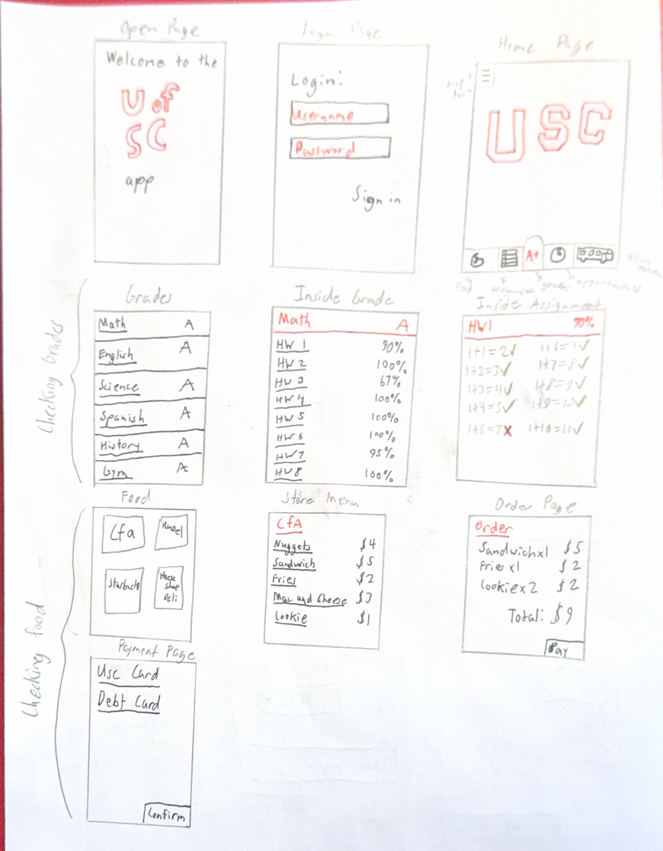 Open Page
Welcome to the
U of
SC
app
Login Page
Login:
Username
Password
Sign in
Home Page
USC
A+
food
assignments
grades
appointments
Checking Grades
Grades
Math A
English A
Science A
Spanish A
History A
Gym A
Inside Grade
Math A
HW 1 90%
HW 2 100%
HW 3 67%
HW 4 100%
HW 5 100%
HW 6 100%
HW 7 95%
HW 8 100%
Inside Assignment
HW1 90%
1+1=2✓ 1+6=7✓
1+2=3✓ 1+7=8✓
1+3=4✓ 1+8=9✓
1+4=5✓ 1+9=10✓
1+5=7X 1+10=11✓
Checking food
Food
Cfa
Starbucks
Store Menu
CfA
Nuggets $4
Sandwich $5
Fries $2
Mac and Cheese $3
Cookie $1
Order Page
Order
Sandwichx1 $5
Fries x1 $2
Cookie x2 $2
Total: $9
Pay
Payment Page
Usc Card
Debt Card
Confirm